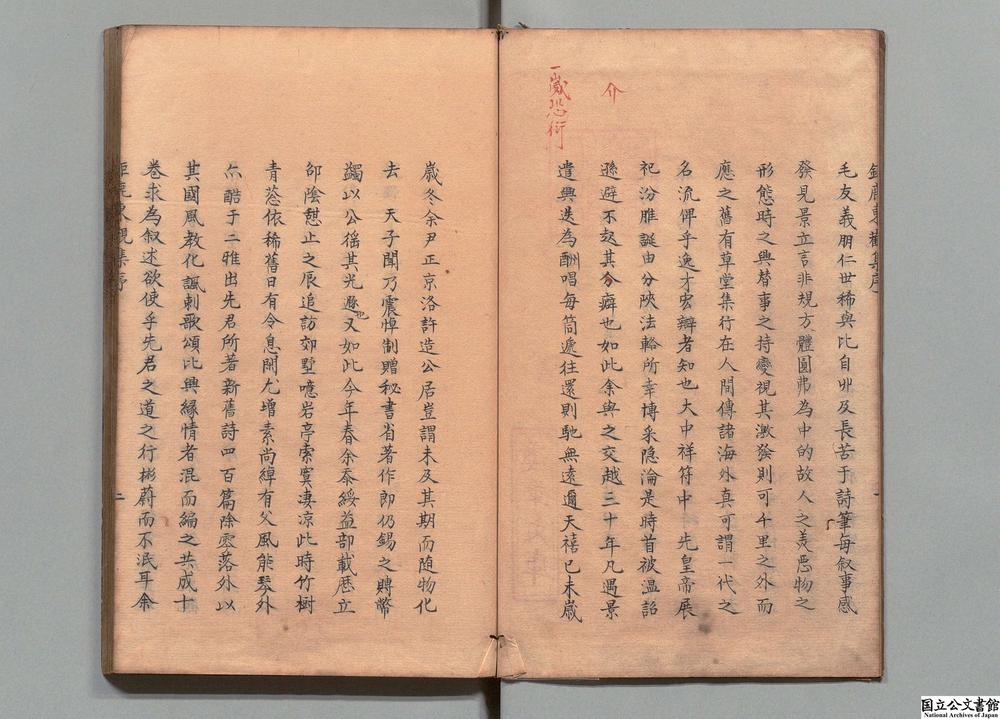 一歲恐衍
介
鉅鹿東觀集序
毛友義朋仁世稀與比自丱及長苦于詩筆每敘事感
發見景立言非規方體圓弗為中的故人之美惡物之
形態時之興替事之持變視其激發則可千里之外而
應之舊有草堂集行在人間傳諸海外真可謂一代之
名流俾乎逸才宏辯者知也大中祥符中 先皇帝展
祀汾脽誕由分陝法輅所幸博采隐淪是時首被溫詔
遜避不起其分癖也如此余與之交越三十年凡遇景
遣興迭為酬唱每筒遞往還則馳無遠邇天禧已未歲
歲冬余尹正京洛許造公居豈謂未及其期而随物化
去 天子聞乃震悼制贈秘書省著作郎仍錫之賻幣
蠲以公徭其光遯也又如此今年春余忝綏益部載歷立
郊陰憇止之辰追訪郊墅噫岩亭索寞凄凉此時竹樹
青葱依稀舊日有令息閒尤增素尚綽有父風能琴外
亦酷于二雅出先君所著新舊詩四百篇除零落外以
其國風教化諷刺歌頌比興緣情者混而編之共成十
卷求為叙述欲使乎先君之道之行彬蔚而不泯耳余
鉅鹿東觀集序
二
国立公文書館
National Archives of Japan